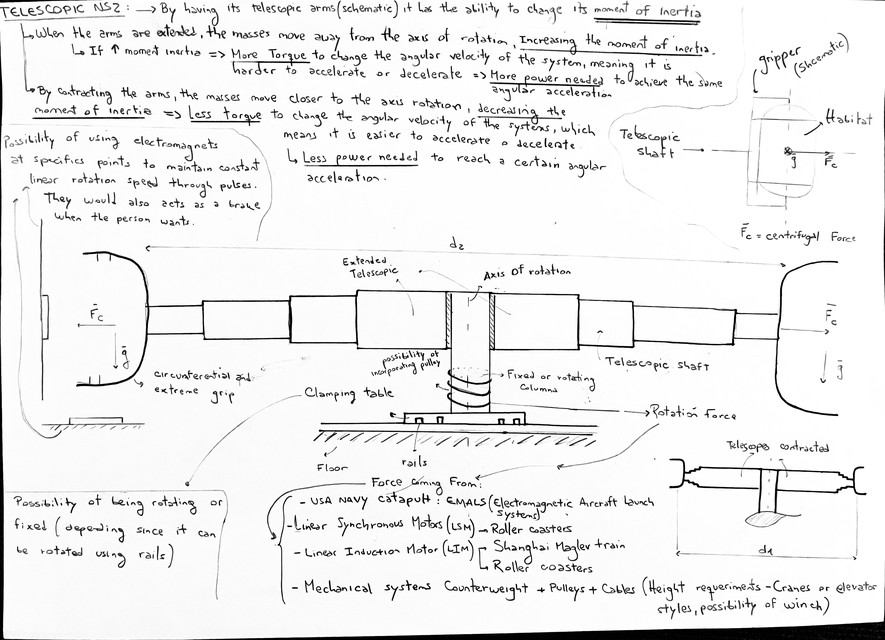 TELESCOPIC NS2 : → By having its telescopic arms (schematic) it has the ability to change its moment of Inertia
When the arms are extended, the masses move away from the axis of rotation, Increasing the moment of inertia.
If ↑ moment inertia => More Torque to change the angular velocity of the system, meaning it is
harder to accelerate or decelerate => More power needed to achieve the same
angular acceleration
By contracting the arms, the masses move closer to the axis rotation, decreasing the
moment of inertia => Less torque to change the angular velocity of the systems, which
means it is easier to accelerate o decelerate
Less power needed to reach a certain angular
acceleration.
Possibility of using electromagnets
at specifics points to maintain constant
linear rotation speed through pulses.
They would also acts as a brake
when the person wants.
gripper
(Shcematic)
Habitat
Telescopic
shaft
g
Fc
Fc = centrifugal Force
d2
Extended
Telescopic
Axis of rotation
Fc
g
Fc
g
circunferential and
extreme grip
possibility of
incorporating pulley
Fixed or rotating
Columns
Telescopic shaft
Clamping table
Rotation Force
Floor
rails
Telescops contracted
d1
Possibility of being rotating or
fixed (depending since it can
be rotated using rails)
Force coming From:
- USA NAVY catapult : EMALS (Electromagnetic Aircraft Launch
Systems)
- Linear Synchronous Motors (LSM) → Roller coasters
- Linear Induction Motor (LIM) Shanghai Maglev train
Roller coasters
- Mechanical systems Counterweight + Pulleys + Cables (Height requeriments - Cranes or elevator
styles, possibility of winch)